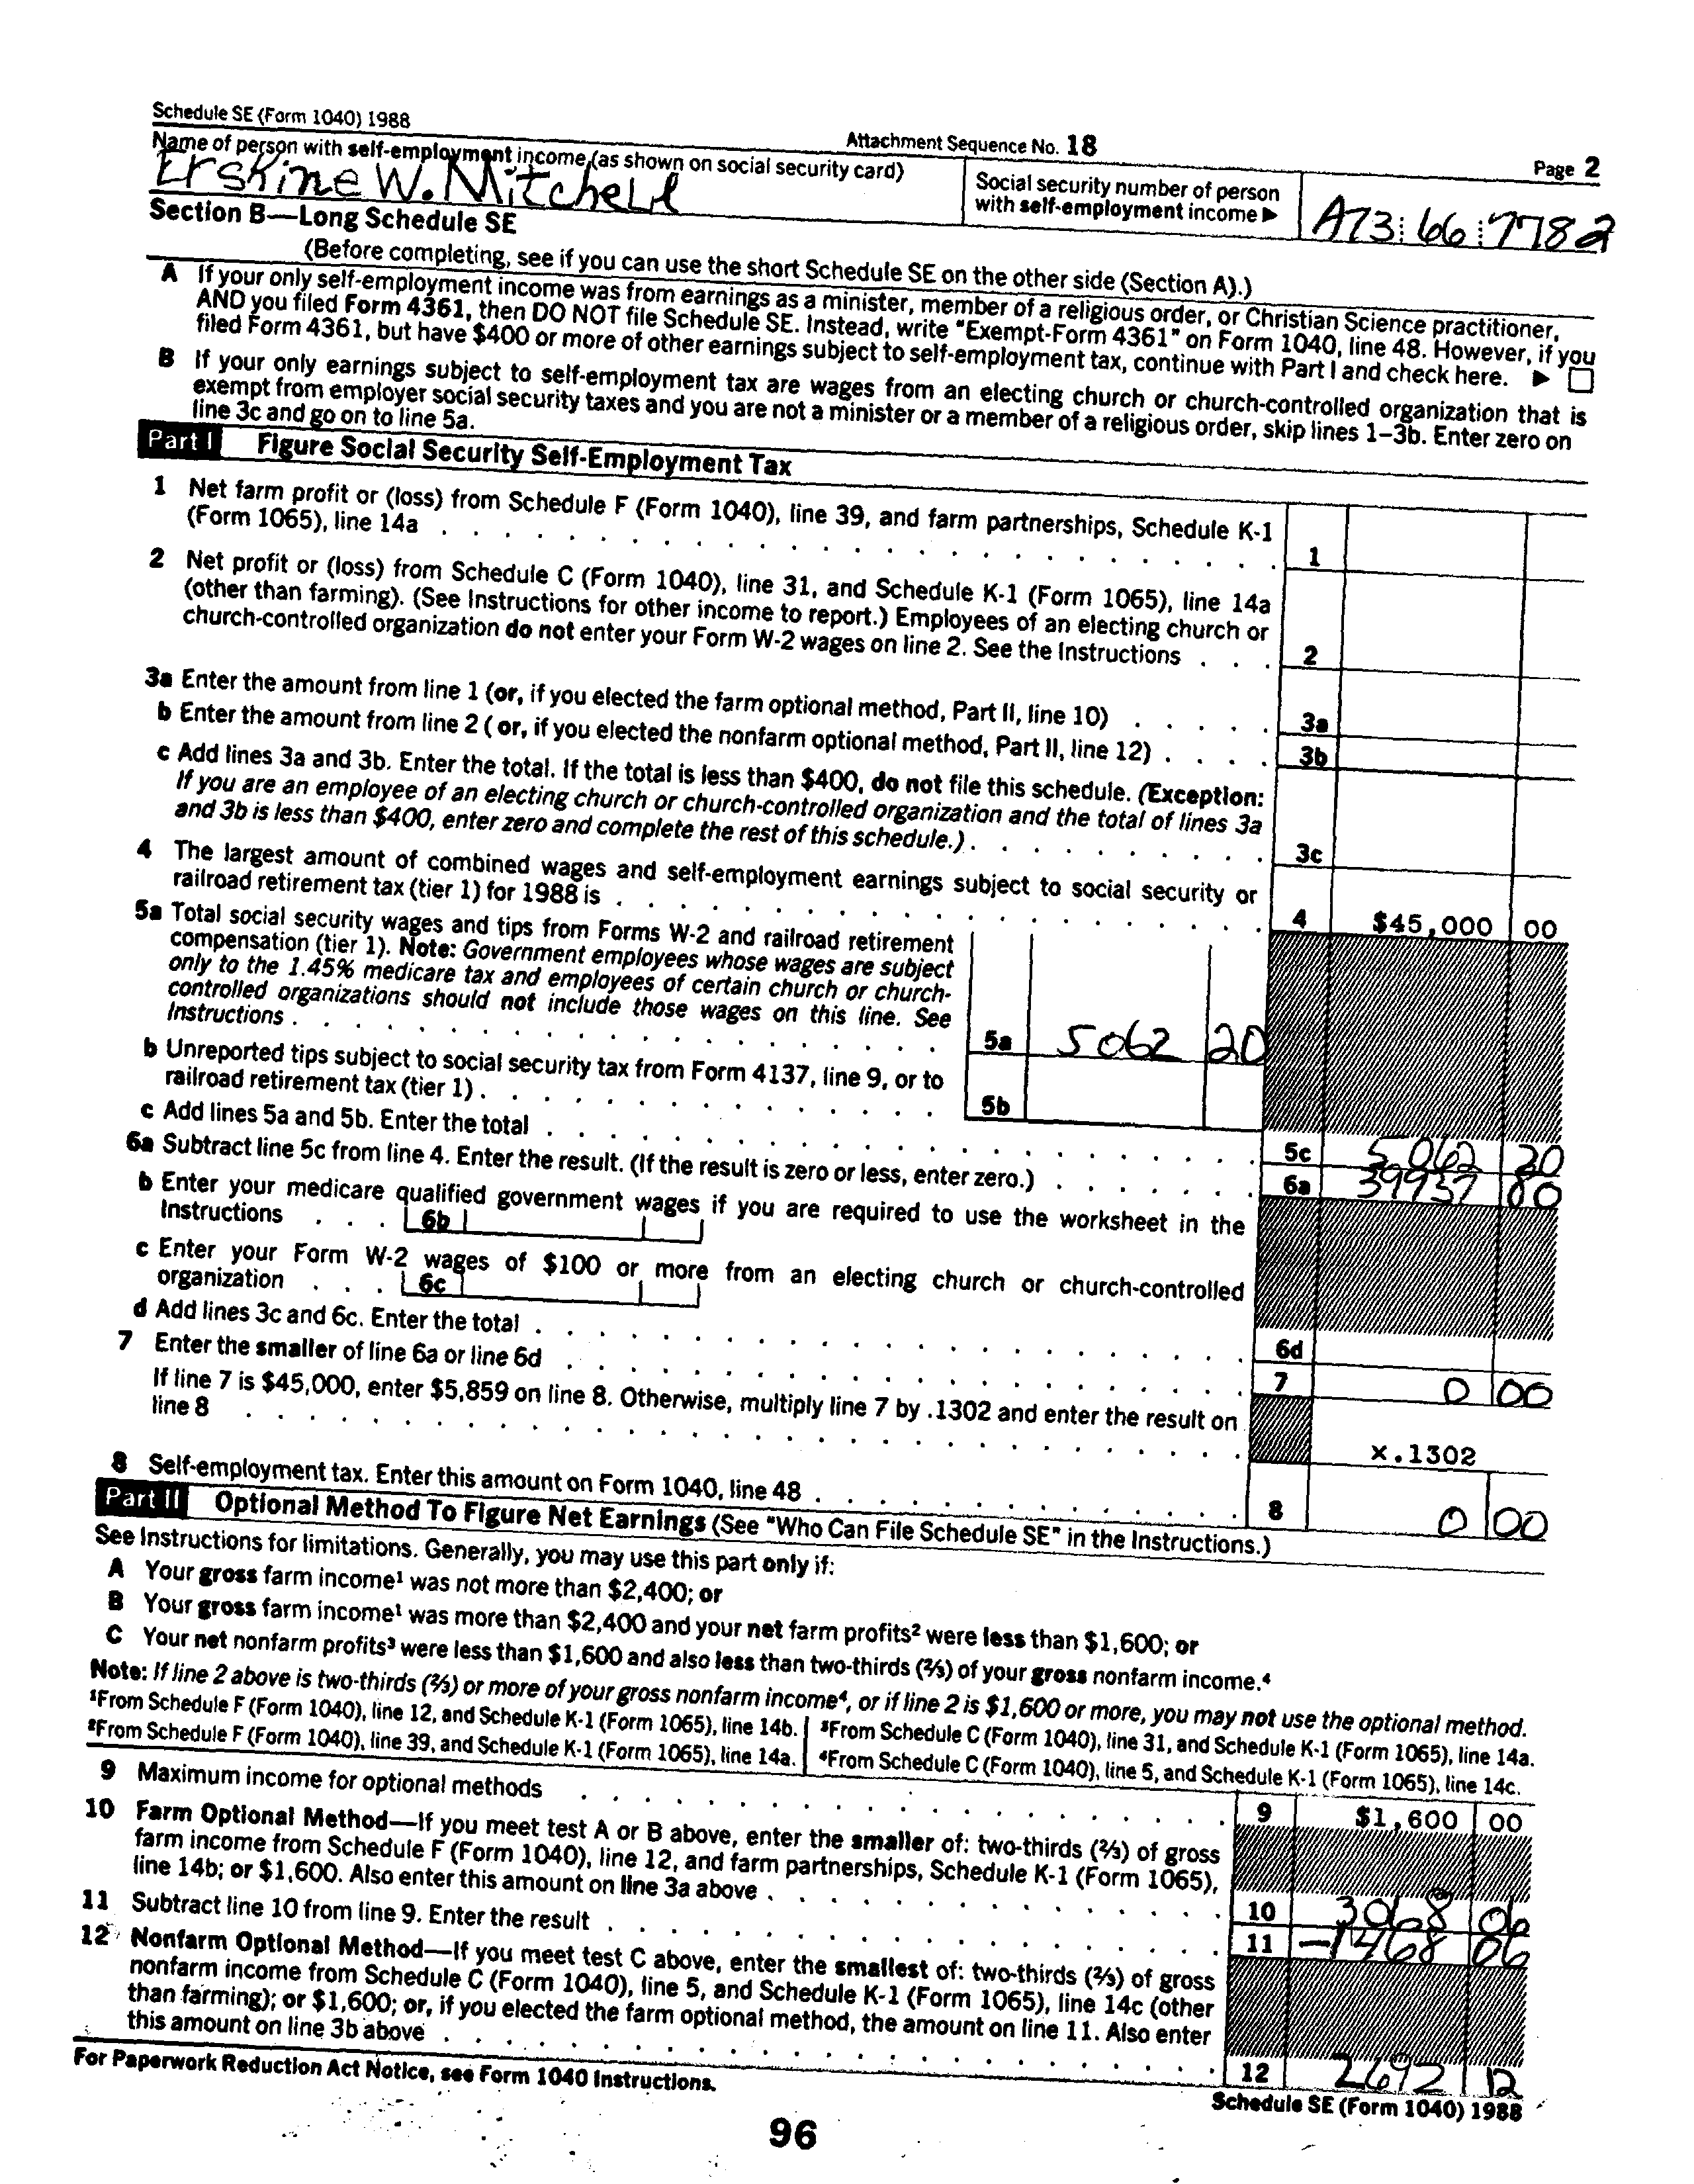 Schedule SE (Form 1040) 1988
Attachment Sequence No. 18
Page 2
Name of person with self-employment income (as shown on social security card)
Erskine W. Mitchell
Social security number of person
with self-employment income ▶
A73 66 7782
Section B—Long Schedule SE
(Before completing, see if you can use the short Schedule SE on the other side (Section A).)
A If your only self-employment income was from earnings as a minister, member of a religious order, or Christian Science practitioner,
AND you filed Form 4361, then DO NOT file Schedule SE. Instead, write "Exempt-Form 4361" on Form 1040, line 48. However, if you
filed Form 4361, but have $400 or more of other earnings subject to self-employment tax, continue with Part I and check here. ▶ ☐
B If your only earnings subject to self-employment tax are wages from an electing church or church-controlled organization that is
exempt from employer social security taxes and you are not a minister or a member of a religious order, skip lines 1–3b. Enter zero on
line 3c and go on to line 5a.
Part I Figure Social Security Self-Employment Tax
1 Net farm profit or (loss) from Schedule F (Form 1040), line 39, and farm partnerships, Schedule K-1
(Form 1065), line 14a . . . 1
2 Net profit or (loss) from Schedule C (Form 1040), line 31, and Schedule K-1 (Form 1065), line 14a
(other than farming). (See Instructions for other income to report.) Employees of an electing church or
church-controlled organization do not enter your Form W-2 wages on line 2. See the Instructions . . . 2
3a Enter the amount from line 1 (or, if you elected the farm optional method, Part II, line 10) . . . 3a
b Enter the amount from line 2 ( or, if you elected the nonfarm optional method, Part II, line 12) . . . 3b
c Add lines 3a and 3b. Enter the total. If the total is less than $400, do not file this schedule. (Exception:
If you are an employee of an electing church or church-controlled organization and the total of lines 3a
and 3b is less than $400, enter zero and complete the rest of this schedule.) . . . 3c
4 The largest amount of combined wages and self-employment earnings subject to social security or
railroad retirement tax (tier 1) for 1988 is . . . 4 $45,000 00
5a Total social security wages and tips from Forms W-2 and railroad retirement
compensation (tier 1). Note: Government employees whose wages are subject
only to the 1.45% medicare tax and employees of certain church or church-
controlled organizations should not include those wages on this line. See
Instructions . . . 5a 5062 20
b Unreported tips subject to social security tax from Form 4137, line 9, or to
railroad retirement tax (tier 1) . . . 5b
c Add lines 5a and 5b. Enter the total . . . 5c 5062 20
6a Subtract line 5c from line 4. Enter the result. (If the result is zero or less, enter zero.) . . . 6a 39937 80
b Enter your medicare qualified government wages if you are required to use the worksheet in the
Instructions . . . 6b
c Enter your Form W-2 wages of $100 or more from an electing church or church-controlled
organization . . . 6c
d Add lines 3c and 6c. Enter the total . . . 6d
7 Enter the smaller of line 6a or line 6d . . . 7 0 00
If line 7 is $45,000, enter $5,859 on line 8. Otherwise, multiply line 7 by .1302 and enter the result on
line 8 . . . x.1302
8 Self-employment tax. Enter this amount on Form 1040, line 48 . . . 8 0 00
Part II Optional Method To Figure Net Earnings (See "Who Can File Schedule SE" in the Instructions.)
See Instructions for limitations. Generally, you may use this part only if:
A Your gross farm income¹ was not more than $2,400; or
B Your gross farm income¹ was more than $2,400 and your net farm profits² were less than $1,600; or
C Your net nonfarm profits³ were less than $1,600 and also less than two-thirds (⅔) of your gross nonfarm income.⁴
Note: If line 2 above is two-thirds (⅔) or more of your gross nonfarm income⁴, or if line 2 is $1,600 or more, you may not use the optional method.
¹From Schedule F (Form 1040), line 12, and Schedule K-1 (Form 1065), line 14b.
²From Schedule F (Form 1040), line 39, and Schedule K-1 (Form 1065), line 14a.
³From Schedule C (Form 1040), line 31, and Schedule K-1 (Form 1065), line 14a.
⁴From Schedule C (Form 1040), line 5, and Schedule K-1 (Form 1065), line 14c.
9 Maximum income for optional methods . . . 9 $1,600 00
10 Farm Optional Method—If you meet test A or B above, enter the smaller of: two-thirds (⅔) of gross
farm income from Schedule F (Form 1040), line 12, and farm partnerships, Schedule K-1 (Form 1065),
line 14b; or $1,600. Also enter this amount on line 3a above . . . 10 3068 06
11 Subtract line 10 from line 9. Enter the result . . . 11 -1468 06
12 Nonfarm Optional Method—If you meet test C above, enter the smallest of: two-thirds (⅔) of gross
nonfarm income from Schedule C (Form 1040), line 5, and Schedule K-1 (Form 1065), line 14c (other
than farming); or $1,600; or, if you elected the farm optional method, the amount on line 11. Also enter
this amount on line 3b above . . . 12 2692 12
For Paperwork Reduction Act Notice, see Form 1040 Instructions.
Schedule SE (Form 1040) 1988
96